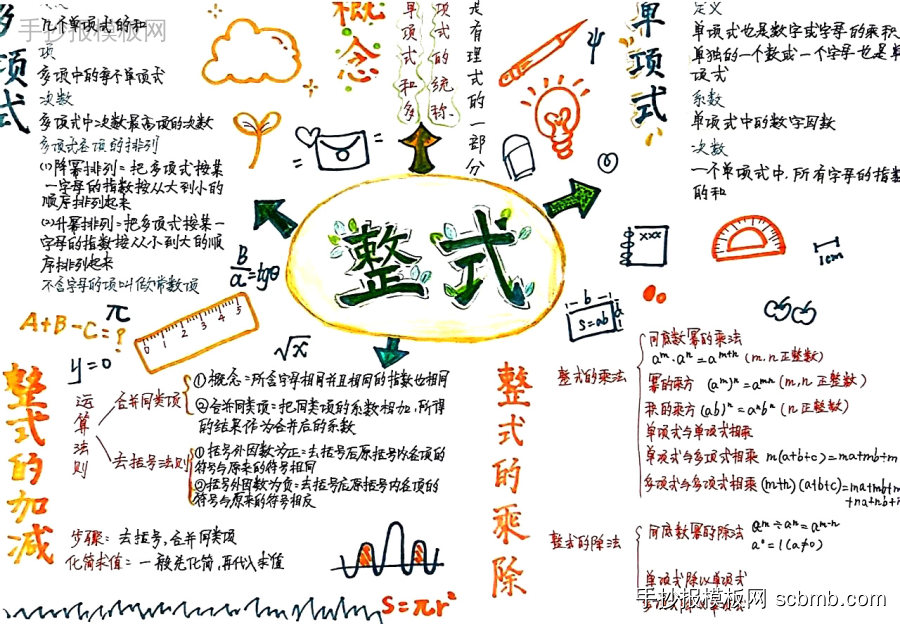 多项式
几个单项式的和
项
多项中的每个单项式
次数
多项式中次数最高项的次数
多项式各项的排列
(1)降幂排列=把多项式按某
一字母的指数按从大到小的
顺序排列起来
(2)升幂排列=把多项式按某一
字母的指数按从小到大的顺
序排列起来
不含字母的项叫做常数项
概念
单项式和多
项式的统称.
是有理式的一部分
ψ
单项式
定义
单项式也是数字或字母的乘积
单独的一个数或一个字母也是单
项式
系数
单项式中的数字因数
次数
一个单项式中,所有字母的指数
的和
整式
B/a=tgθ
π
A+B-C=?
y=0
0 1 2 3 4 5
√x
xxx
1cm
b
a
S=ab
整式的加减
运算法则
合并同类项
①概念=所含字母相同并且相同的指数也相同
②合并同类项=把同类项的系数相加,所得
的结果作为合并后的系数
去括号法则
①括号外因数为正=去括号后原括号内各项的
符号与原来的符号相同
②括号外因数为负=去括号后原括号内各项的
符号与原来的符号相反
步骤:去括号,合并同类项
化简求值=一般先化简,再代入求值
S=πr²
整式的乘除
整式的乘法
同底数幂的乘法
aᵐ·aⁿ=aᵐ⁺ⁿ (m.n正整数)
幂的乘方 (aᵐ)ⁿ=aᵐⁿ (m,n正整数)
积的乘方(ab)ⁿ=aⁿbⁿ (n正整数)
单项式与单项式相乘
单项式与多项式相乘 m(a+b+c)=ma+mb+m
多项式与多项式相乘(m+n)(a+b+c)=ma+mb+m
+na+nb+n
整式的除法
同底数幂的除法 aᵐ÷aⁿ=aᵐ⁻ⁿ
a⁰=1(a≠0)
单项式除以单项式
手抄报模板网
手抄报模板网 scbmb.com